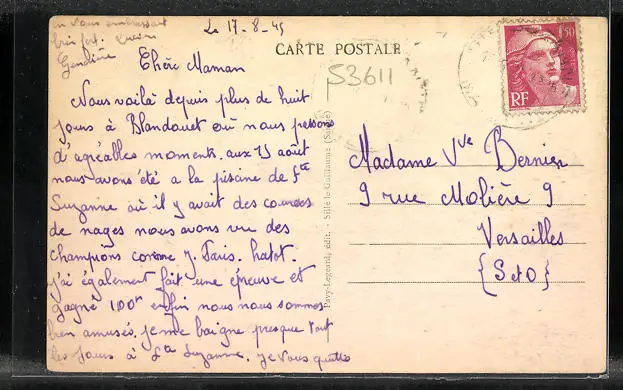 en vous embrassant
bien fort.
Le 17-8-45
CARTE POSTALE
53611
Chère Maman
Nous voilà depuis plus de huit
jours à Blandouet où nous passons
d'agréables moments. aux 15 août
nous avons été a la piscine de Ste
Suzanne où il y avait des courses
de nages nous avons vu des
champions comme J. Taris. hatot.
j'ai également fait une épreuve et
gagné 100f enfin nous nous sommes
bien amusés. je me baigne presque tout
les jours à Ste Suzanne. je vous quitte
Pavy-Legeard, édit. - Sillé-le-Guillaume (Sarthe)
1F50
RF
Madame Vve Bernier
9 rue Molière 9
Versailles
{S et O}